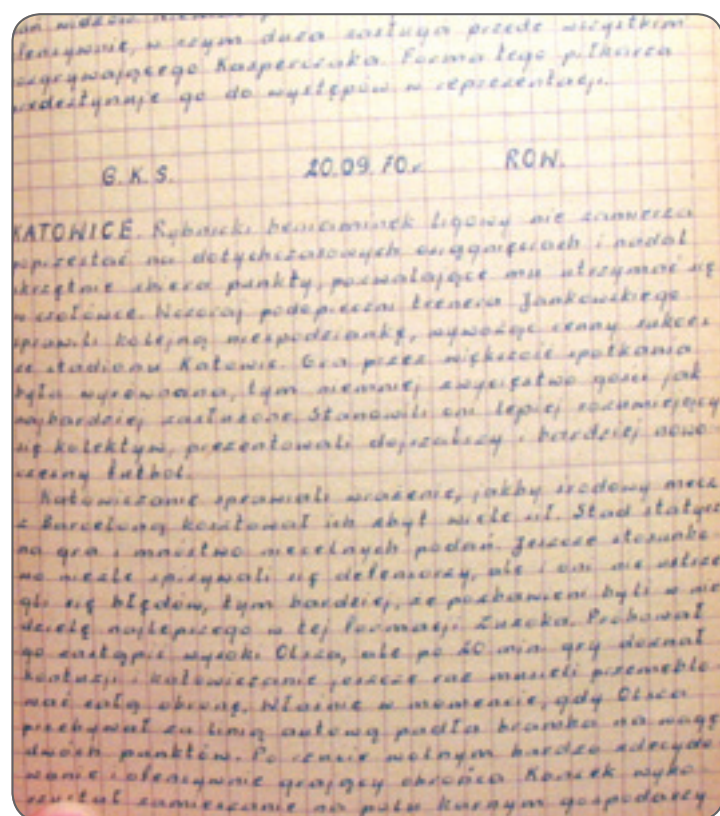 widzów
ofensywnie, w czym duża zasługa przede wszystkim
rozgrywającego Kasperczaka. Forma tego piłkarza
predestynuje go do występów w reprezentacji.
G.K.S. 20.09.70.r ROW.
KATOWICE. Rybnicki beniaminek ligowy nie zamierza
poprzestać na dotychczasowych osiągnięciach i nadal
skrzętnie zbiera punkty, pozwalające mu utrzymać się
w czołówce. Wczoraj podopieczni trenera Jankowskiego
sprawili kolejną niespodziankę, wywożąc cenny sukces
ze stadionu Katowic. Gra przez większość spotkania
była wyrównana, tym niemniej zwycięstwo gości jak
najbardziej zasłużone. Stanowili oni lepiej rozumiejący
się kolektyw, prezentowali dojrzalszy i bardziej nowo-
czesny futbol.
Katowiczanie sprawiali wrażenie, jakby środowy mecz
z Barceloną kosztował ich zbyt wiele sił. Stąd statycz
na gra i mnóstwo niecelnych podań. Jeszcze stosunko-
wo nieźle spisywali się defensorzy, ale i oni nie ustrze
gli się błędów, tym bardziej, że pozbawieni byli w nie
dzielę najlepszego w tej formacji Zuzoka. Próbował
go zastąpić wysoki Olsza, ale po 20 min. gry doznał
kontuzji i katowiczanie jeszcze raz musieli przemeblo-
wać całą obronę. Właśnie w momencie, gdy Olsza
przebywał za linią autową padła bramka na wagę
dwóch punktów. Po rzucie wolnym bardzo zdecydo
wanie i ofensywnie grający obrońca wyko
rzystał zamieszanie na polu karnym gospodarzy